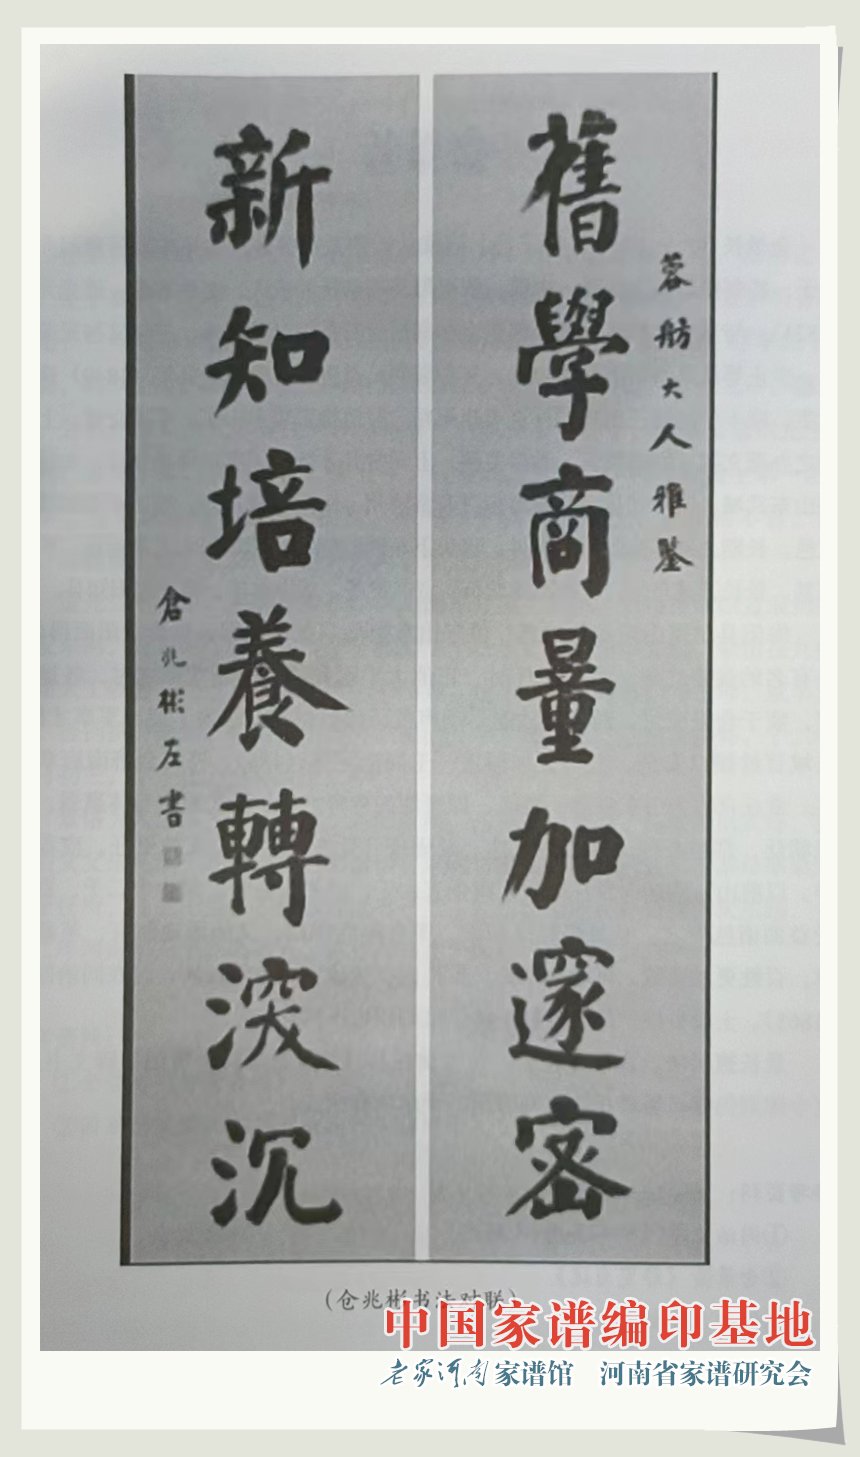 舊學商量加邃密
蓉舫大人雅鑒
新知培養轉深沉
倉兆彬左書
（仓兆彬书法对联）
中国家谱编印基地
老家河南家谱馆 河南省家谱研究会